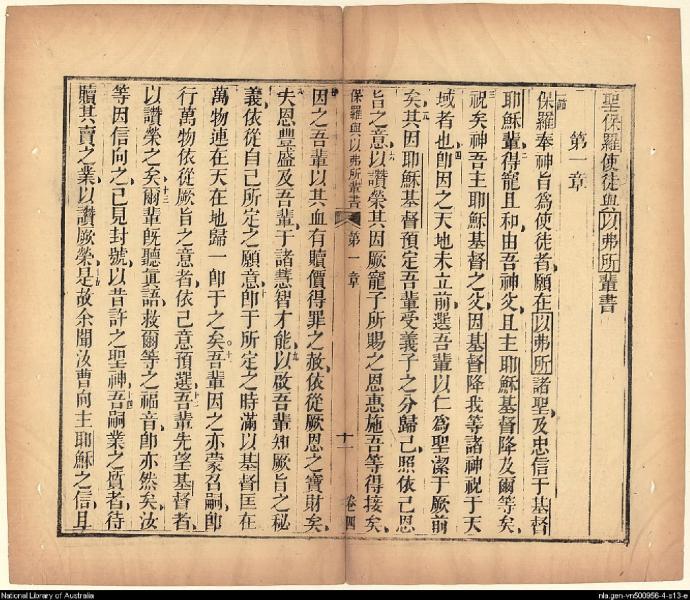 聖保羅使徒與以弗所輩書
第一章
保羅奉神旨為使徒者願在以弗所諸聖及忠信于基督
耶穌輩得寵且和由吾神父且主耶穌基督降及爾等矣
祝矣神吾主耶穌基督之父因基督降我等諸神祝于天
域者也即因之天地未立前選吾輩以仁為聖潔于厥前
矣其因耶穌基督預定吾輩受義子之分歸己照依己恩
旨之意以讚榮其因厥寵子所賜之恩惠施吾等得接矣
保羅與以弗所輩書 第一章 十一 卷四
因之吾輩以其血有贖價得罪之赦依從厥恩之寶財矣
夫恩豐盛及吾輩于諸慧智才能以啟吾輩知厥旨之秘
義依從自己所定之願意即于所定之時滿以基督匡在
萬物連在天在地歸一即于之矣吾輩因之亦蒙召嗣即
行萬物依從厥旨之意者依己意預選吾輩先望基督者
以讚榮之矣爾輩既聽眞語救爾等之福音即亦然矣汝
等因信向之己見封號以昔許之聖神吾嗣業之質者待
贖其賣之業以讚厥榮是故余聞汝曹向主耶穌之信且
National Library of Australia
nla.gen-vn500956-4-s13-e